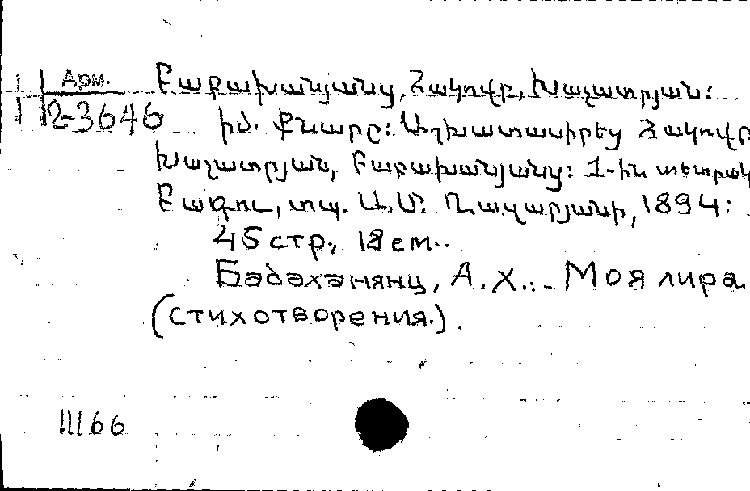 Арм.
12-3646
Բաբախանյանց, Հակովբ, Խաչատրյան:
Իմ. Քնարը: Աշխատասիրեց Հակովբ
Խաչատրյան, Բաբախանյանց: 1-ին տետրակ
Բագու, տպ. Ա.Մ. Ղազարյանի, 1894:
45 стр., 18 см..
Бабаханянц, А.Х.:. Моя лира
(стихотворения.).
11166